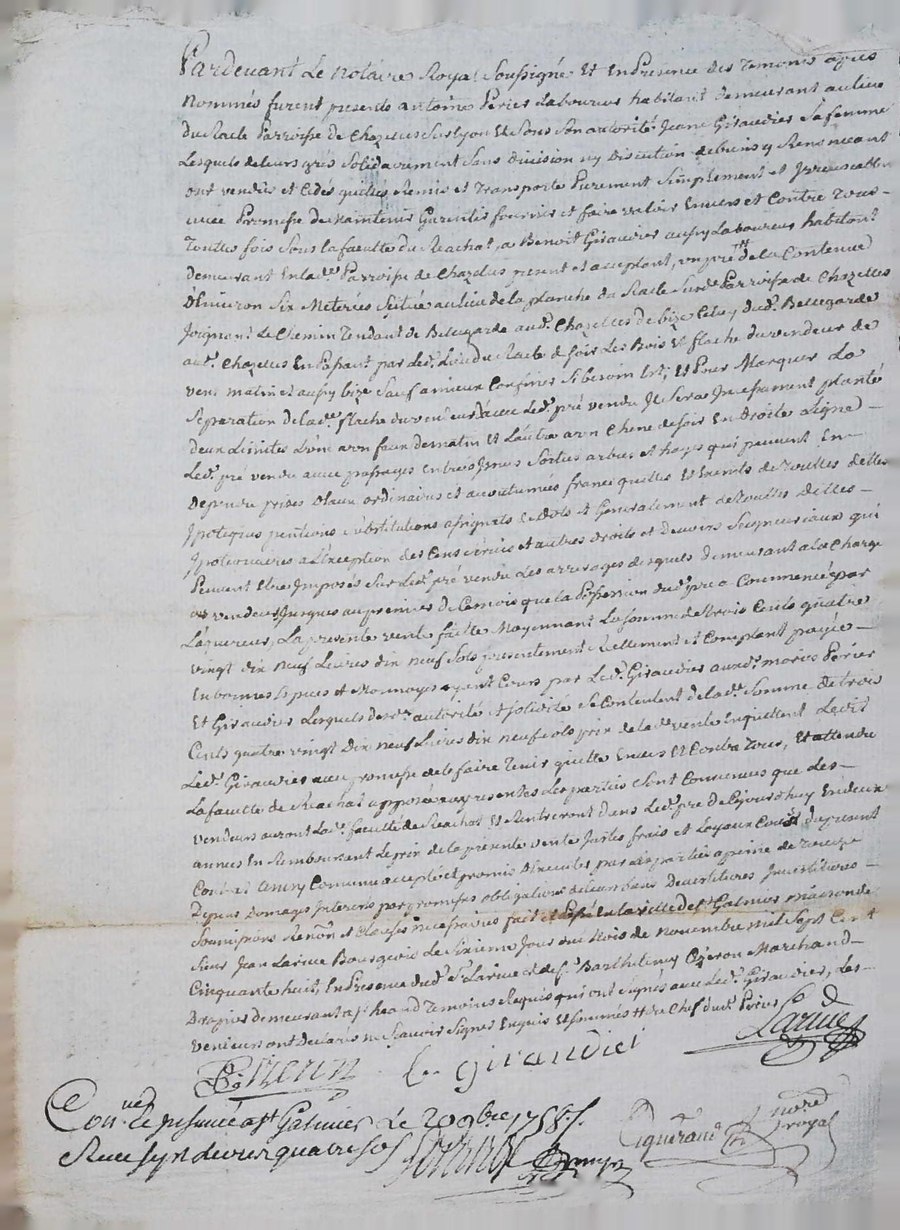 Pardevant Le Notaire Royal Soussigné Et En Presence des Temoins apres
Nommés furent presents antoine Perier Laboureur habitant demeurant au lieu
du Racle Parroisse de Chazelles Sur lyon Et Sous Son autorité Jeane Giraudier Sa femme
Lesquels de leurs grés Solidairement Sans division ny Discution de biens y Renoncant
ont vendus et Cédés quittés Remis et Transporté Purement Simplement et Irrevocablem
avec Promesse de maintenir Garentir fournir et faire valoir Envers et Contre Tous
Touttes fois Sous la faculté du Reachat, a Benoit Giraudier aussy Laboureur habitant
Demeurant En lade Parroisse de Chazelles present et acceptant, un pré de la Contenue
D'Environ Six Meterées Scitué au lieu de la planche du Racle Surd. Parroisse de Chazelles
Joignant Le Chemin Tendant de Bellegarde aud. Chazelles de bize Celuy dud. Bellegarde
aud. Chazelles En Passant par led. Lieu du Racle de Soir Les Bois Et flache du vendeur de
vent matin et aussy bize Sauf a mieux Confiner Si besoin Est; Et Pour Marquer La
Separation de lade flache du vendeur d'avec Led. pré vendu Il Sera Incessament planté
deux Limites L'un a un faux de matin Et L'autre a un Chene de Soir En droite Ligne
Led. pré vendu avec passages Entrées Issues Sorties arbres et hayes qui peuvent En
dependre prises d'Eaux ordinaires et accoutumées franc quittes Et Exempts de Touttes dettes
Ipoteques pentions Substitutions assignats de Dots et Generalement de Touttes dettes
Ipotecaires a L'Exception des Cens Servis et autres Droits et Devoirs Seigneuriaux qui
Peuvent Etre Imposés Sur Led. pré vendu Les arrerages desquels demeurant a la Charge
des vendeurs Jusques au premier de Ce mois que la Possession dud. pré a Commencé par
L'aquereur, La presente vente faitte Moyennant La Somme de trois Cents quatre
vingt dix neuf Livres dix neuf Sols presentement Reellement et Comptant payée
En bonnes Especes et Monnoyes ayant Cours par Led. Giraudier auxd. mariés Perier
Et Giraudier Lesquels de sd. autorité et Solidité Se Contentent de lad. Somme de trois
Cents quatre vingt Dix neuf Livres dix neuf Sols prix de lad. vente En quittent Ledit
Led. Giraudier avec promesse de le faire Tenir quitte Envers Et Contre Tous, Et attendu
La faculté de Reachat apposée aux presentes Les parties Sont Convenues que des
vendeurs auront Lad. faculté de Reachat Et Rentreront dans Led. pré de Cejourdhuy En deux
années En Remboursant Le prix de la presente vente Jactes frais et Loyaux Couts du present
Contrat Ainsy Convenu accepté et promis d'Executer par des parties a peine de Tous
Depens Domages Interets par promesses obligations de leurs biens Devestitures Investitures
Soumissions Renon. et Clauses necessaires fait et Passé En la ville de St Galmier maison de
Sieur Jean Larive Bourgeois Le Sixieme Jour du Mois de Novembre mil Sept Cent
Cinquante huit, En Presence dud. Sr Larive et de Sr Barthelemy Marchand
Drapier demeurant a St Temoins Requis qui ont signés avec Led. Giraudier, Les
vendeurs ont declarés ne Scavoir Signer Enquis et Sommés
Larive
b. giraudier
Conlé le présent a St Galmier Le 9bre 1758
Recu Sept livres quatre sols
nore royal